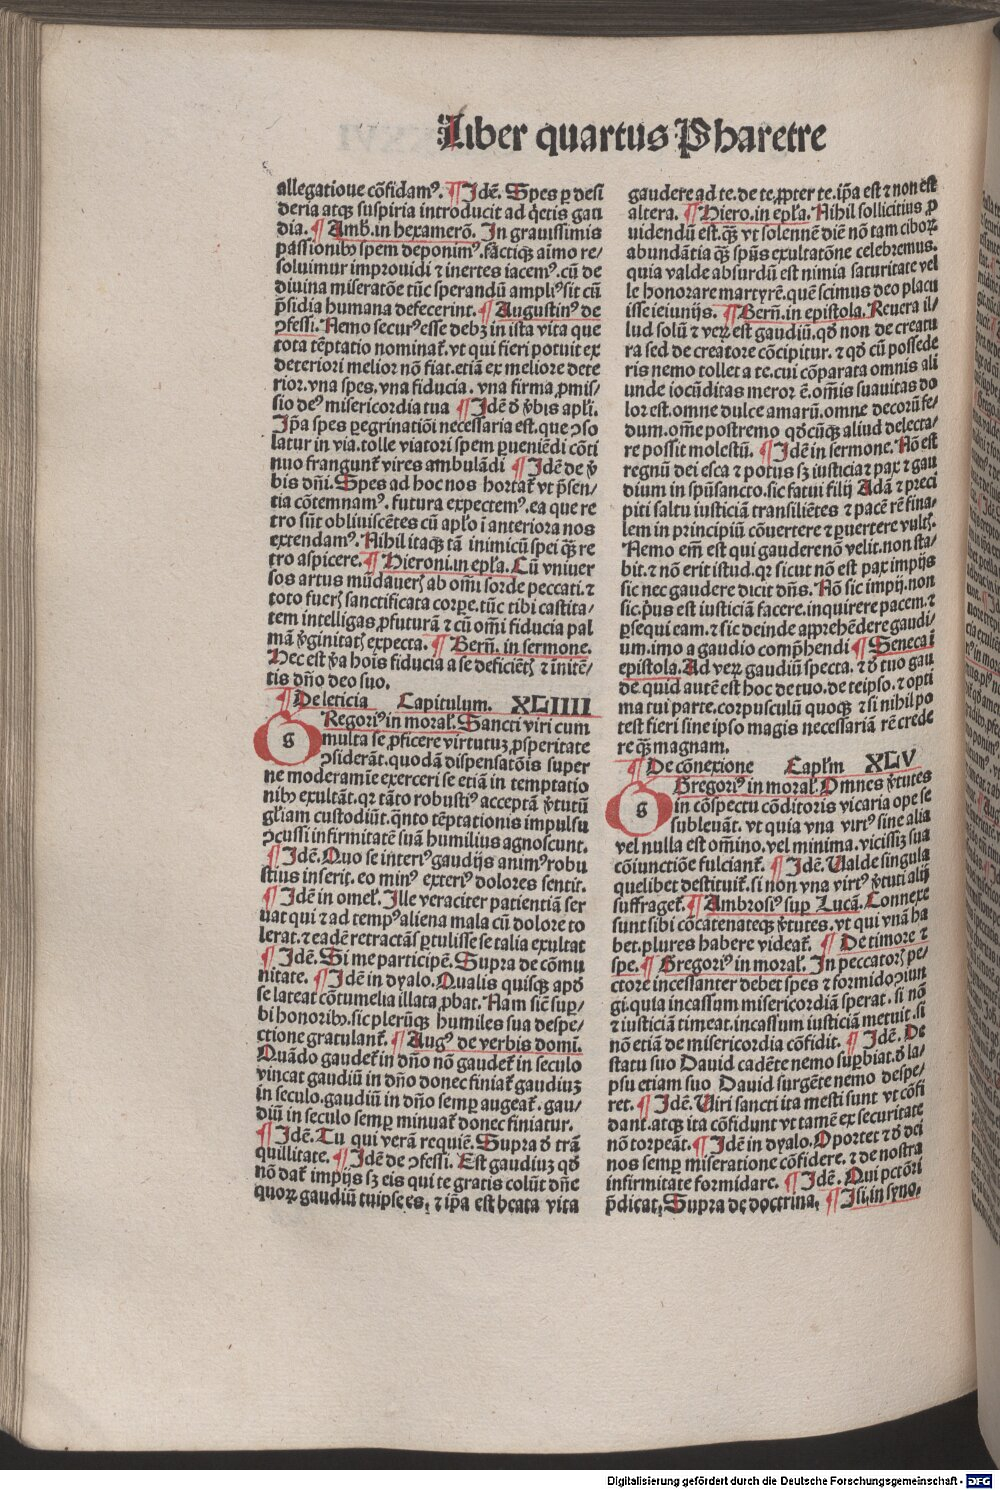 Liber quartus Pharetre
allegatione cōfidamꝰ. ¶ Idē. Spes ꝑ desi
deria atqꝫ suspiria introducit ad q̇etis gau
dia. ¶ Amb. in hexamerō. In grauissimis
passionibꝰ spem deponimꝰ. factiqꝫ aīmo re/
soluimur improuidi ⁊ inertes iacemꝰ. cū de
diuina miseratōe tūc sperandū ampliꝰ sit cū
p̄sidia humana defecerint. ¶ Augustinꝰ de
ꝯfessi. Nemo securꝰ esse debꝫ in ista vita que
tota tēptatio nominat̄. vt qui fieri potuit ex
deteriori melior nō fiat. etiā ex meliore dete
rior. vna spes. vna fiducia. vna firma ꝓmis/
sio deꝰ misericordia tua ¶ Idē ď v̄bis apl̄i.
Ip̄a spes ꝑegrinatiōi necessaria est. que ꝯso
latur in via. tolle viatori spem ꝑueniēdi cōti
nuo frangunt̄ vires ambulādi ¶ Idē de v̄
bis dn̄i. Spes ad hoc nos hortat̄ vt p̄sen/
tia cōtemnamꝰ. futura expectemꝰ. ea que re
tro sūt obliuiscētes cū apl̄o i anteriora nos
extendamꝰ. Nihil itaqꝫ tā inimicū spei qꝫ̄ re
tro aspicere. ¶ Hieroni. in epl̄a. Cū vniuer
sos artus mūdaueꝝ ab om̄i sorde peccati. ⁊
toto fueꝝ sanctificata corpe. tūc tibi castita/
tem intelligas ꝓfuturā ⁊ cū om̄i fiducia pal
mā v̄ginitatꝭ expecta. ¶ Bern̄. in sermone.
Hec est v̄a hoīs fiducia a se deficiētꝭ ⁊ īnitē/
tis dn̄o deo suo.
¶ De leticia Capitulum. XLIIII
g Regoriꝰ in moral̄. Sancti viri cum
multa se ꝓficere virtutuꝫ ꝓsperitate
ꝯsiderāt. quodā dispensatōis super
ne moderamīe exerceri se etiā in temptatio
nibꝰ exultāt. qꝛ tāto robustiꝰ acceptā v̄tutū
gl̄iam custodiūt. q̄nto tēptationis impulsu
ꝯcussi infirmitatē suā humilius agnoscunt.
¶ Idē. Quo se interiꝰ gaudijs animꝰ robu
stius inserit. eo minꝰ exteriꝰ dolores sentit.
¶ Idē in omel̄. Ille veraciter patientiā ser
uat qui ⁊ ad tempꝰ aliena mala cū dolore to
lerat. ⁊ eadē retractās ꝑtulisse se talia exultat
¶ Idē. Si me participē. Supra de cōmu
nitate. ¶ Idē in dyalo. Qualis quisqꝫ apď
se lateat cōtumelia illata ꝓbat. Nam sic̄ suꝑ/
bi honoribꝰ. sic plerūqꝫ humiles sua despe/
ctione gratulant̄. ¶ Augꝰ de verbis domi.
Quādo gaudet̄ in dn̄o nō gaudet̄ in seculo
vincat gaudiū in dn̄o donec finiat̄ gaudiuꝫ
in seculo. gaudiū in dn̄o semꝑ augeat̄. gau/
diū in seculo semꝑ minuat̄ donec finiatur.
¶ Idē. Tu qui verā requiē. Supra ď trā
quillitate. ¶ Idē de ꝯfessi. Est gaudiuꝫ qď
nō dat̄ impijs sꝫ eis qui te gratis colūt dn̄e
quoꝝ gaudiū tuip̄e es, ⁊ ip̄a est beata vita
gaudere ad te. de te. ꝓpter te. ip̄a est ⁊ non est
altera. ¶ Hiero. in epl̄a. Nihil sollicitius ꝓ
uidendū est. qꝫ̄ vt solennē diē nō tam ciboꝝ
abundātia qꝫ̄ sp̄us exultatōne celebremus.
quia valde absurdū est nimia saturitate vel
le honorare martyrē. quē scimus deo placu
isse ieiunijs. ¶ Bern̄. in epistola. Reuera il/
lud solū ⁊ veꝝ est gaudiū. qď non de creatu
ra sed de creatore cōcipitur. ⁊ qď cū possede
ris nemo tollet a te. cui cōparata omnis ali
unde iocūditas meror ē. om̄is suauitas do
lor est. omne dulce amarū. omne decorū fe/
dum. om̄e postremo qďcūqꝫ aliud delecta/
re possit molestū. ¶ Idē in sermone. Nō est
regnū dei esca ⁊ potus sꝫ iusticia ⁊ pax ⁊ gau
dium in spūsancto. sic fatui filij Adā ⁊ preci
piti saltu iusticiā transiliētes ⁊ pacē rē fina/
lem in principiū cōuertere ⁊ ꝑuertere vultꝭ.
Nemo em̄ est qui gaudere nō velit. non sta/
bit. ⁊ nō erit istud. qꝛ sicut nō est pax impijs
sic nec gaudere dicit dn̄s. Nō sic impij. non
sic. p̄us est iusticiā facere. inquirere pacem. ⁊
ꝑsequi eam. ⁊ sic deinde apprehēdere gaudi/
um. imo a gaudio comp̄hendi ¶ Seneca ī
epistola. Ad veꝝ gaudiū specta. ⁊ ď tuo gau
de. quid autē est hoc de tuo. de teipso. ⁊ opti
ma tui parte. corpusculū quoqꝫ ⁊ si nihil po
test fieri sine ipso magis necessariā rē crede
re qꝫ̄ magnam.
¶ De cōnexione Capl̄m XLV
g Gregoriꝰ in moral̄. Omnes v̄tutes
in cōspectu cōditoris vicaria ope se
subleuāt. vt quia vna virtꝰ sine alia
vel nulla est om̄ino. vel minima. vicissiꝫ sua
cōiunctiōe fulciant̄. ¶ Idē. Ualde singula
quelibet destituit̄. si non vna virtꝰ v̄tuti alij
suffraget̄. ¶ Ambrosiꝰ suꝑ Lucā. Connexe
sunt sibi cōcatenateqꝫ v̄tutes. vt qui vnā ha
bet. plures habere videat̄. ¶ De timore ⁊
spe. ¶ Gregoriꝰ in moral̄. In peccatoꝝ pe/
ctore incessanter debet spes ⁊ formido ꝯiun
gi. quia incassum misericordiā sperat. si nō
⁊ iusticiā timeat. incassum iusticiā metuit. si
nō etiā de misericordia cōfidit. ¶ Idē. De
statu suo Dauid cadēte nemo suꝑbiat. ď la/
psu etiam suo Dauid surgēte nemo despe/
ret. ¶ Idē. Uiri sancti ita mesti sunt vt cōfi
dant. atqꝫ ita cōfidunt vt tamē ex securitate
nō torpeāt. ¶ Idē in dyalo. Oportet ⁊ ď dei
nos semꝑ miseratione cōfidere. ⁊ de nostra
infirmitate formidare. ¶ Idē. Qui pctōri
p̄dicat, Supra de doctrina, ¶ Isi. in syno.
Digitalisierung gefördert durch die Deutsche Forschungsgemeinschaft - DFG